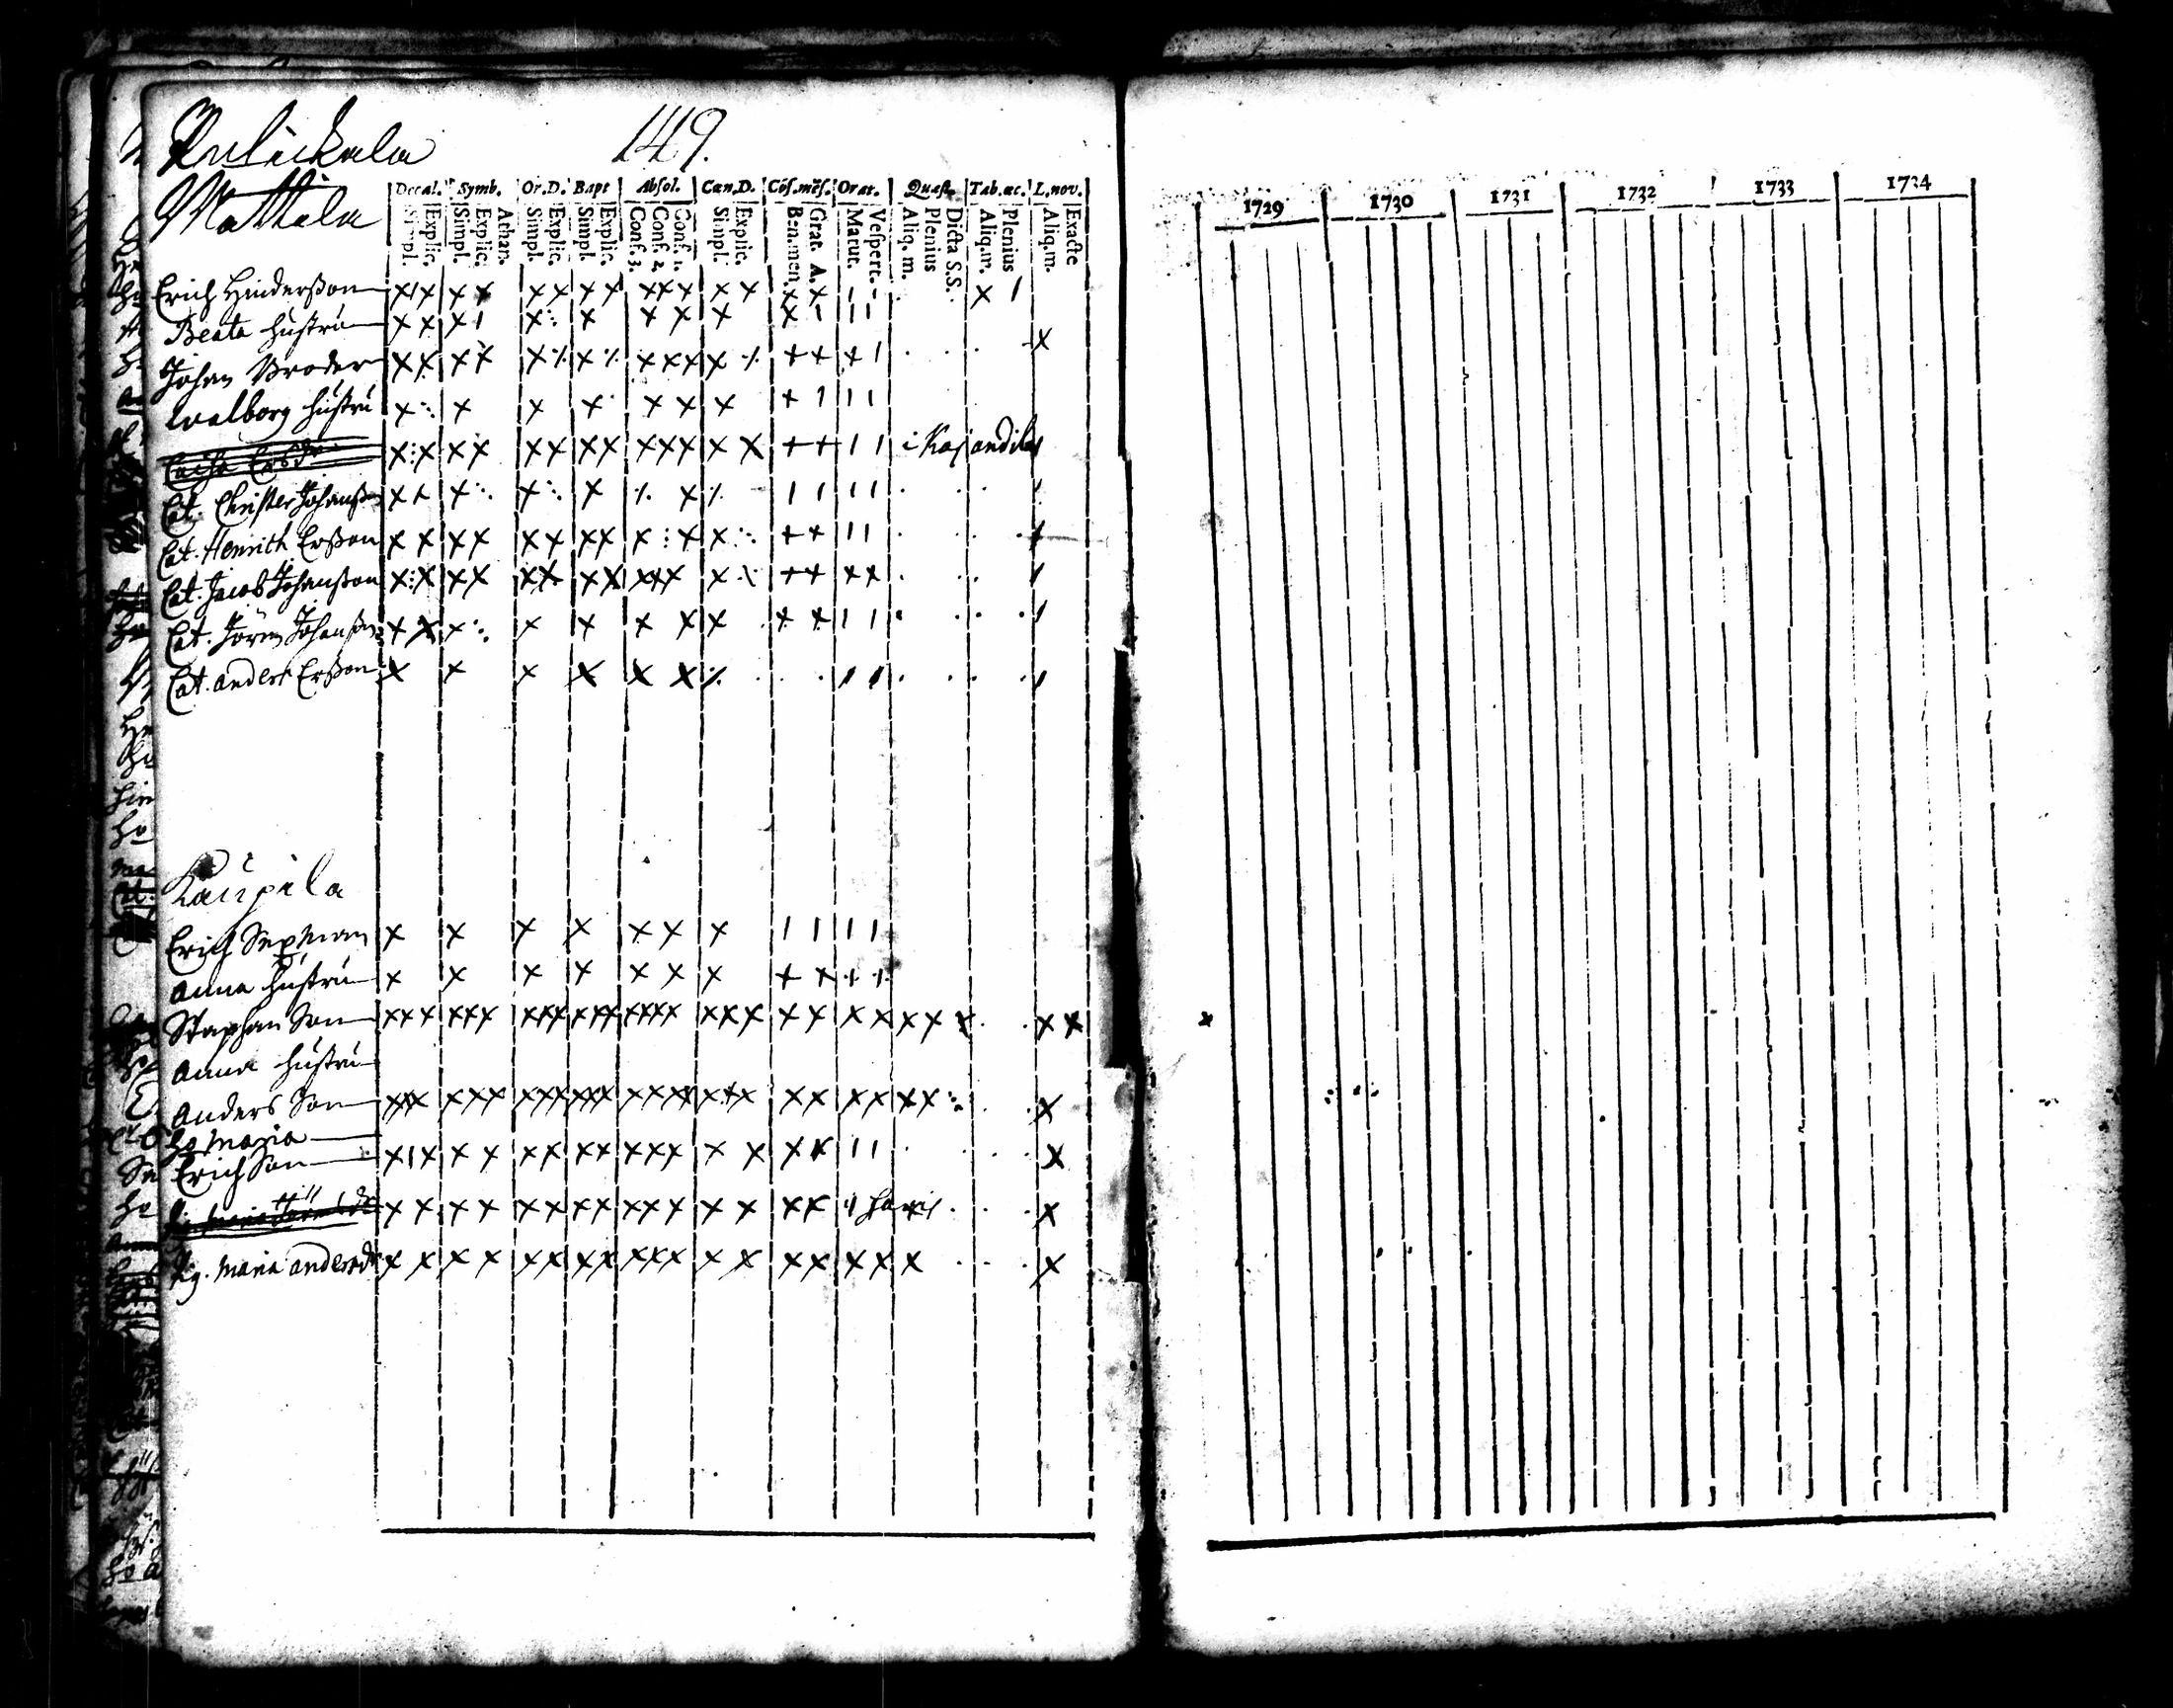 149.
Mattila
Decal. Symb. Or.D. Bapt Absol. Cœn.D. Cōf.mēs. Orat. Quæst. Tab.œc. L.nov.
Simpl. Explic. Simpl. Explic. Athan. Simpl. Explic. Simpl. Explic. Conf. 3. Conf. 2. Conf. 1. Simpl. Explic. Ben.men. Grat. A. Matut. Vespert. Aliq. m. Plenius Dicta S.S. Aliq.m. Plenius Aliq.m. Exacte
Erich Hinderßon
Beata hustru
Johan Broder
Walborg hustru
Cat. Christer Johanß
Cat. Henrich Erßon
Cat. Jacob Johanßon
Cat. Jören Johanßon
Cat. anders Erßon
Kaupila
Erich
Anna hustru
Staphan Son
Anna hustru
Anders Son
h. Maria
Erich Son
Pig. Maria andersdr
1729 1730 1731 1732 1733 1734